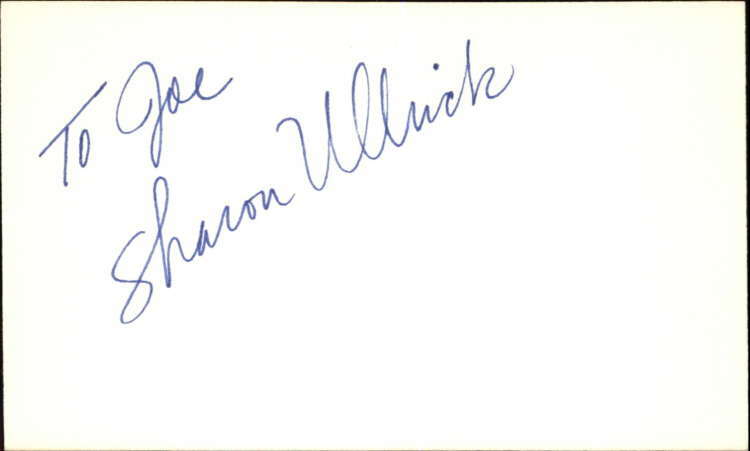 To Joe
Sharon Ullrick